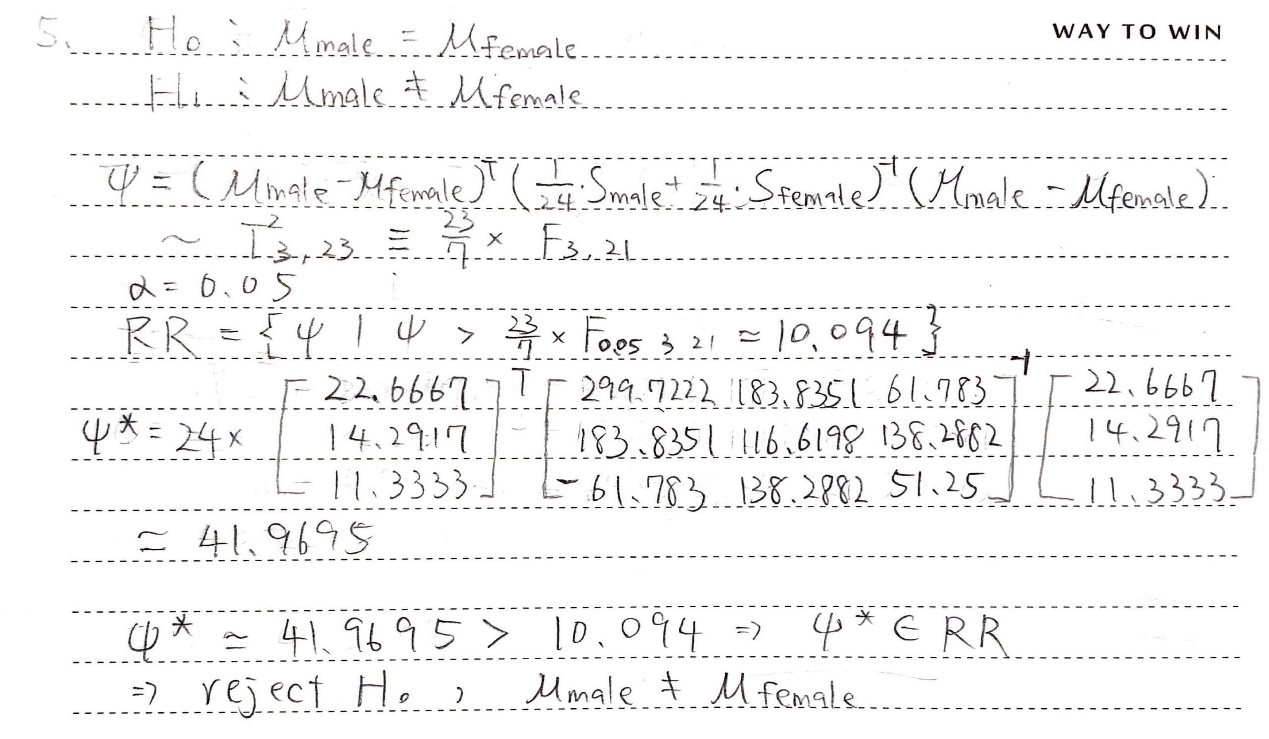 WAY TO WIN
5. H₀ : μmale = μfemale
H₁ : μmale ≠ μfemale
Ψ = (μmale - μfemale)ᵀ (1/24 · Smale + 1/24 · Sfemale)⁻¹ (μmale - μfemale)
~ T²₃,₂₃ ≡ 23/7 × F₃,₂₁
α = 0.05
RR = { ψ | ψ > 23/7 × F₀.₀₅ ₃ ₂₁ ≃ 10.094 }
ψ* = 24 × [ 22.6667 ]ᵀ [ 299.7222 183.8351 61.783 ]⁻¹ [ 22.6667 ]
[ 14.2917 ] [ 183.8351 116.6198 138.2882 ] [ 14.2917 ]
[ 11.3333 ] [ 61.783 138.2882 51.25 ] [ 11.3333 ]
≃ 41.9695
ψ* ≃ 41.9695 > 10.094 ⇒ ψ* ∈ RR
⇒ reject H₀ , μmale ≠ μfemale